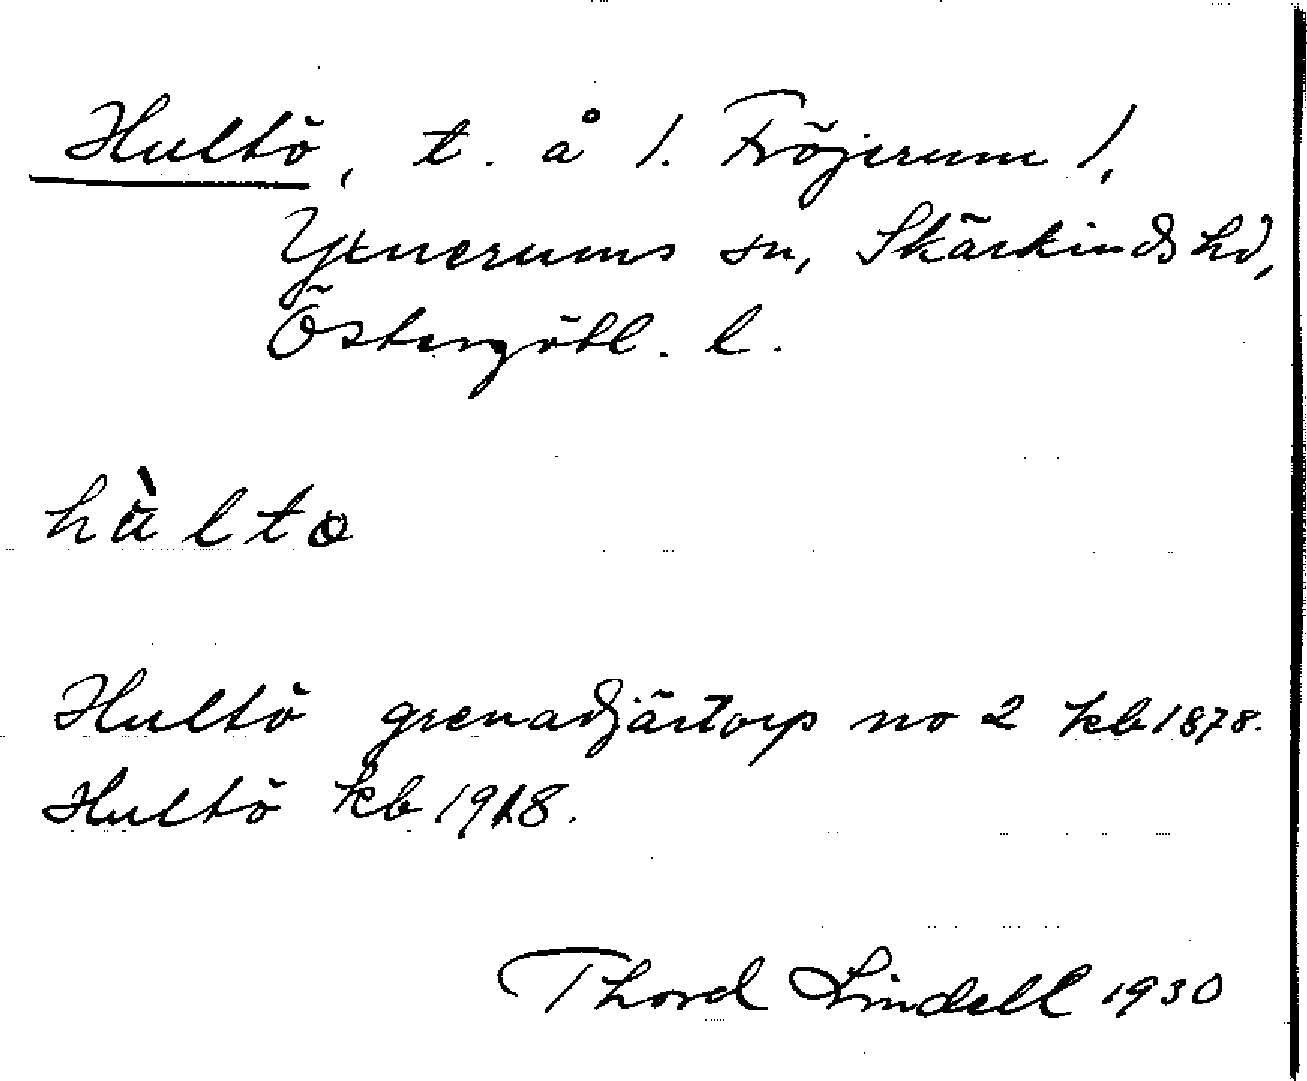 Hultö, t. å 1. Fröjerum 1,
Yxnerums sn, Skärkinds hd,
Östergötl. l.
hùlto
Hultö grenadjärtorp no 2 kb 1878.
Hultö kb 1918.
Thord Lindell 1930